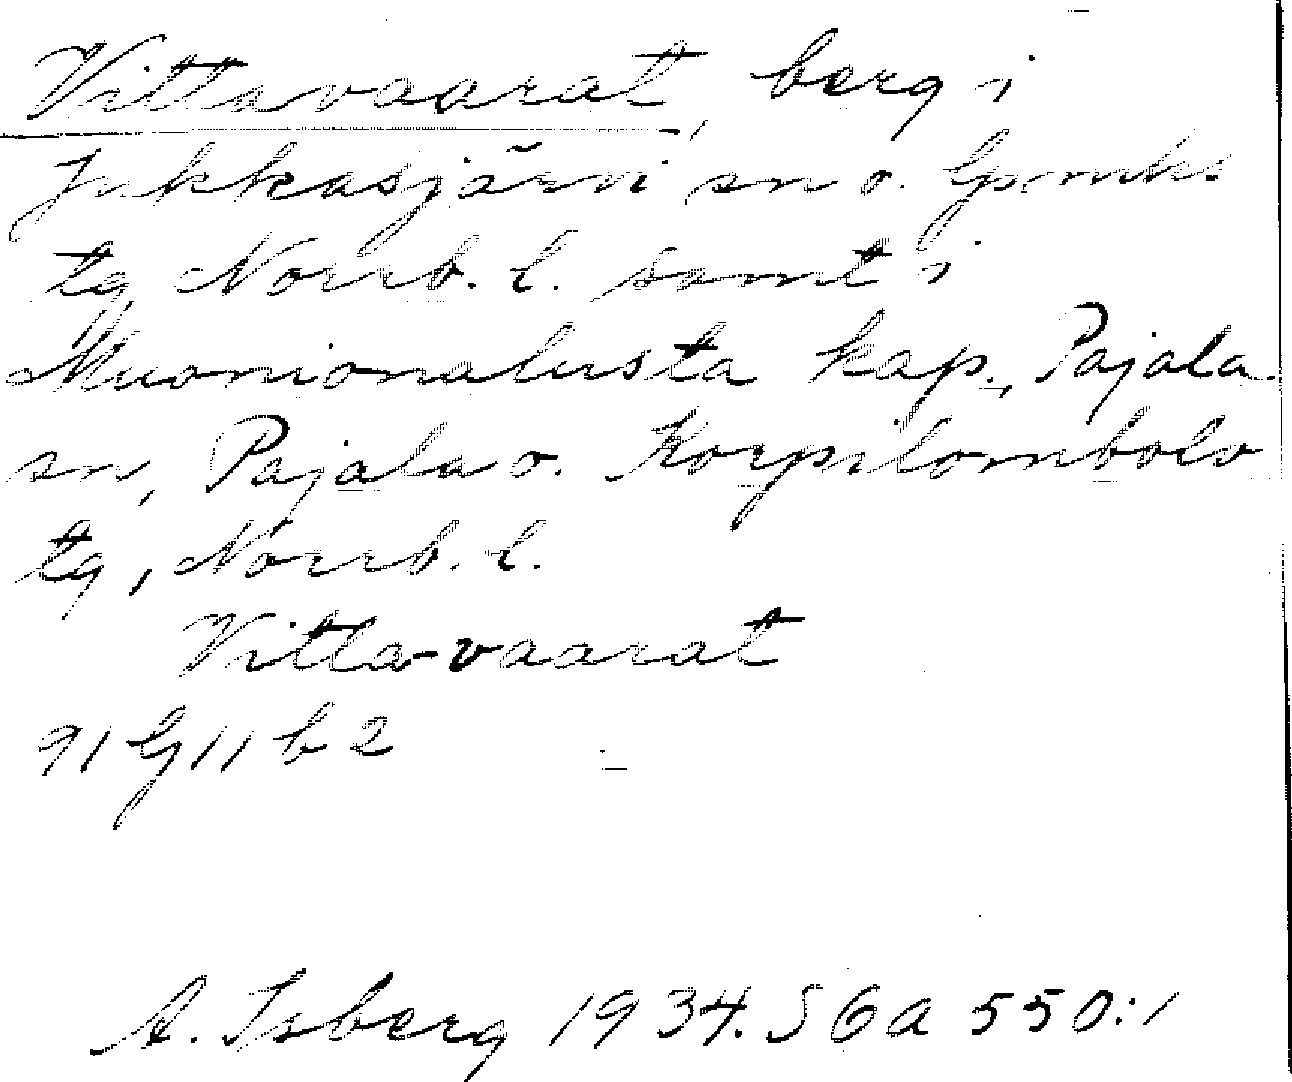 Vittavaarat, berg i
Jukkasjärvi sn o. lpsmhs
tg Norrb. l. samt i
Muonionalusta kap., Pajala
sn, Pajala o. Korpilombolo
tg, Norrb. l.
Vitta-vaarat
91 G 11 b 2
A. Isberg 1934. SGA 550:1